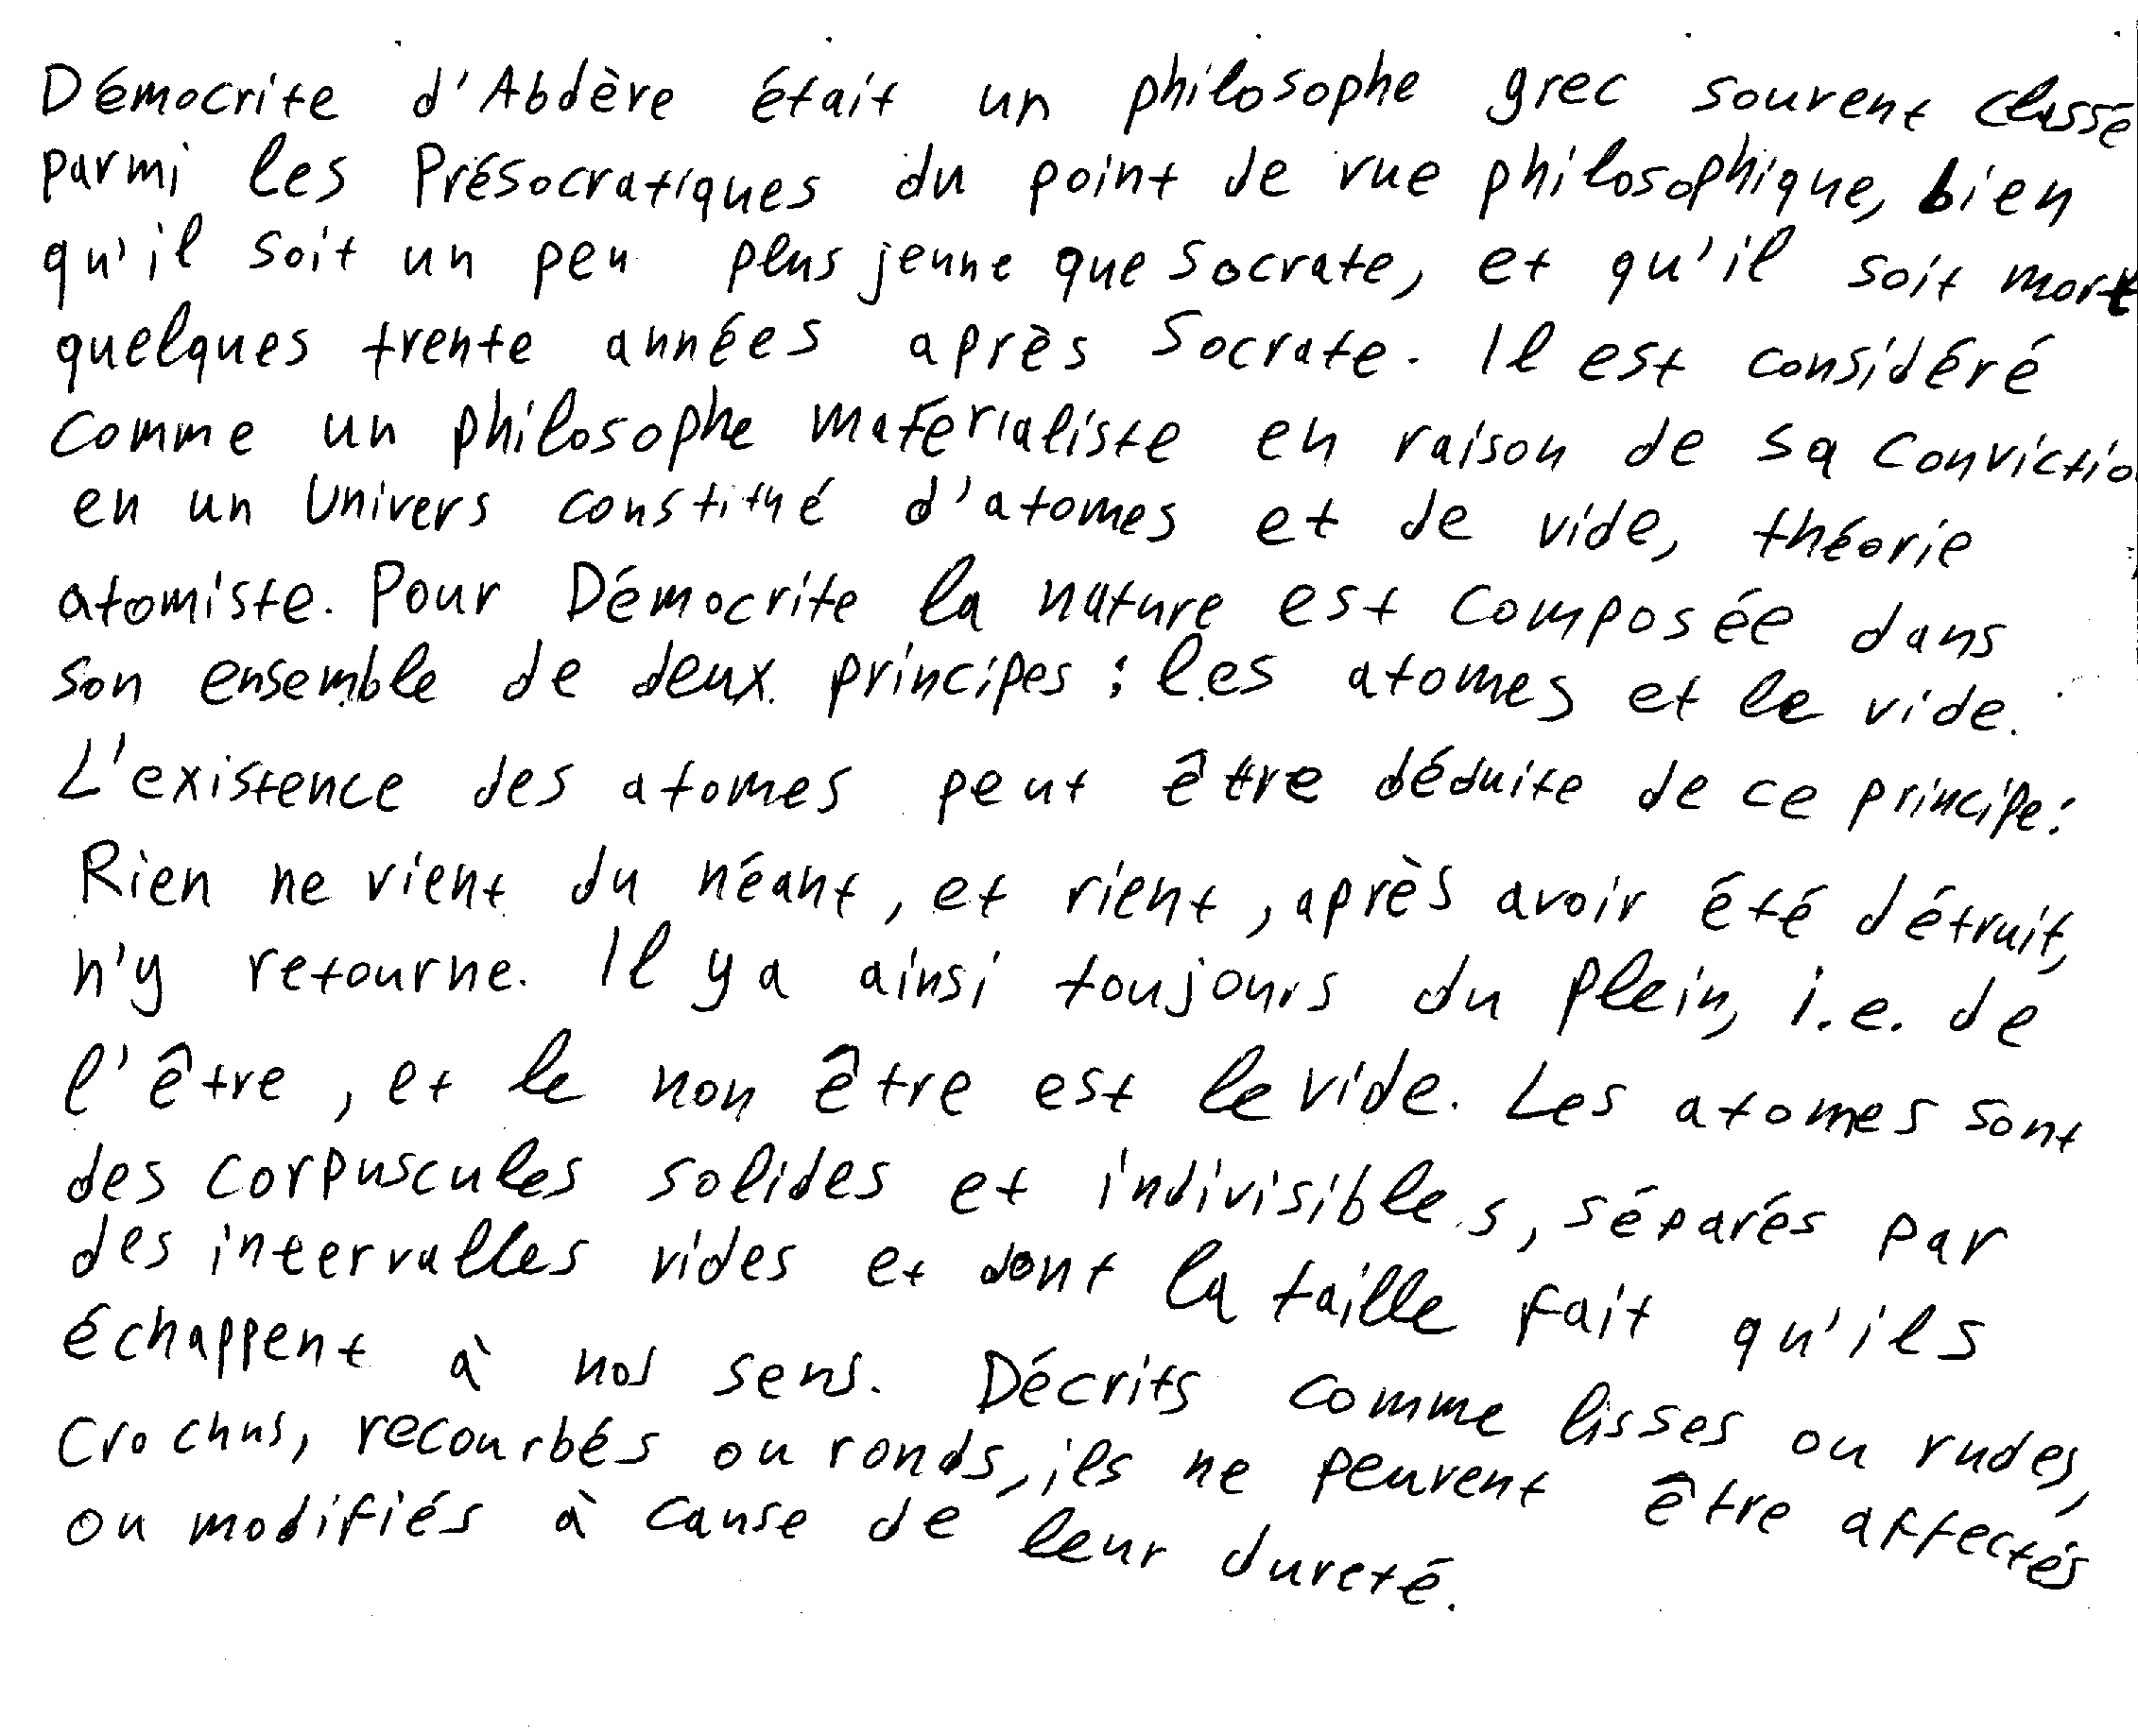 Démocrite d'Abdère était un philosophe grec souvent classé
parmi les Présocratiques du point de vue philosophique, bien
qu'il soit un peu plus jeune que Socrate, et qu'il soit mort
quelques trente années après Socrate. Il est considéré
comme un philosophe matérialiste en raison de sa convictio
en un Univers constitué d'atomes et de vide, théorie
atomiste. Pour Démocrite la nature est composée dans
son ensemble de deux principes : les atomes et le vide.
L'existence des atomes peut être déduite de ce principe:
Rien ne vient du néant, et rient, après avoir été détruit,
n'y retourne. Il y a ainsi toujours du plein, i.e. de
l'être, et le non être est le vide. Les atomes sont
des corpuscules solides et indivisibles, séparés par
des intervalles vides et dont la taille fait qu'ils
échappent à nos sens. Décrits comme lisses ou rudes,
crochus, recourbés ou ronds, ils ne peuvent être affectés
ou modifiés à cause de leur dureté.